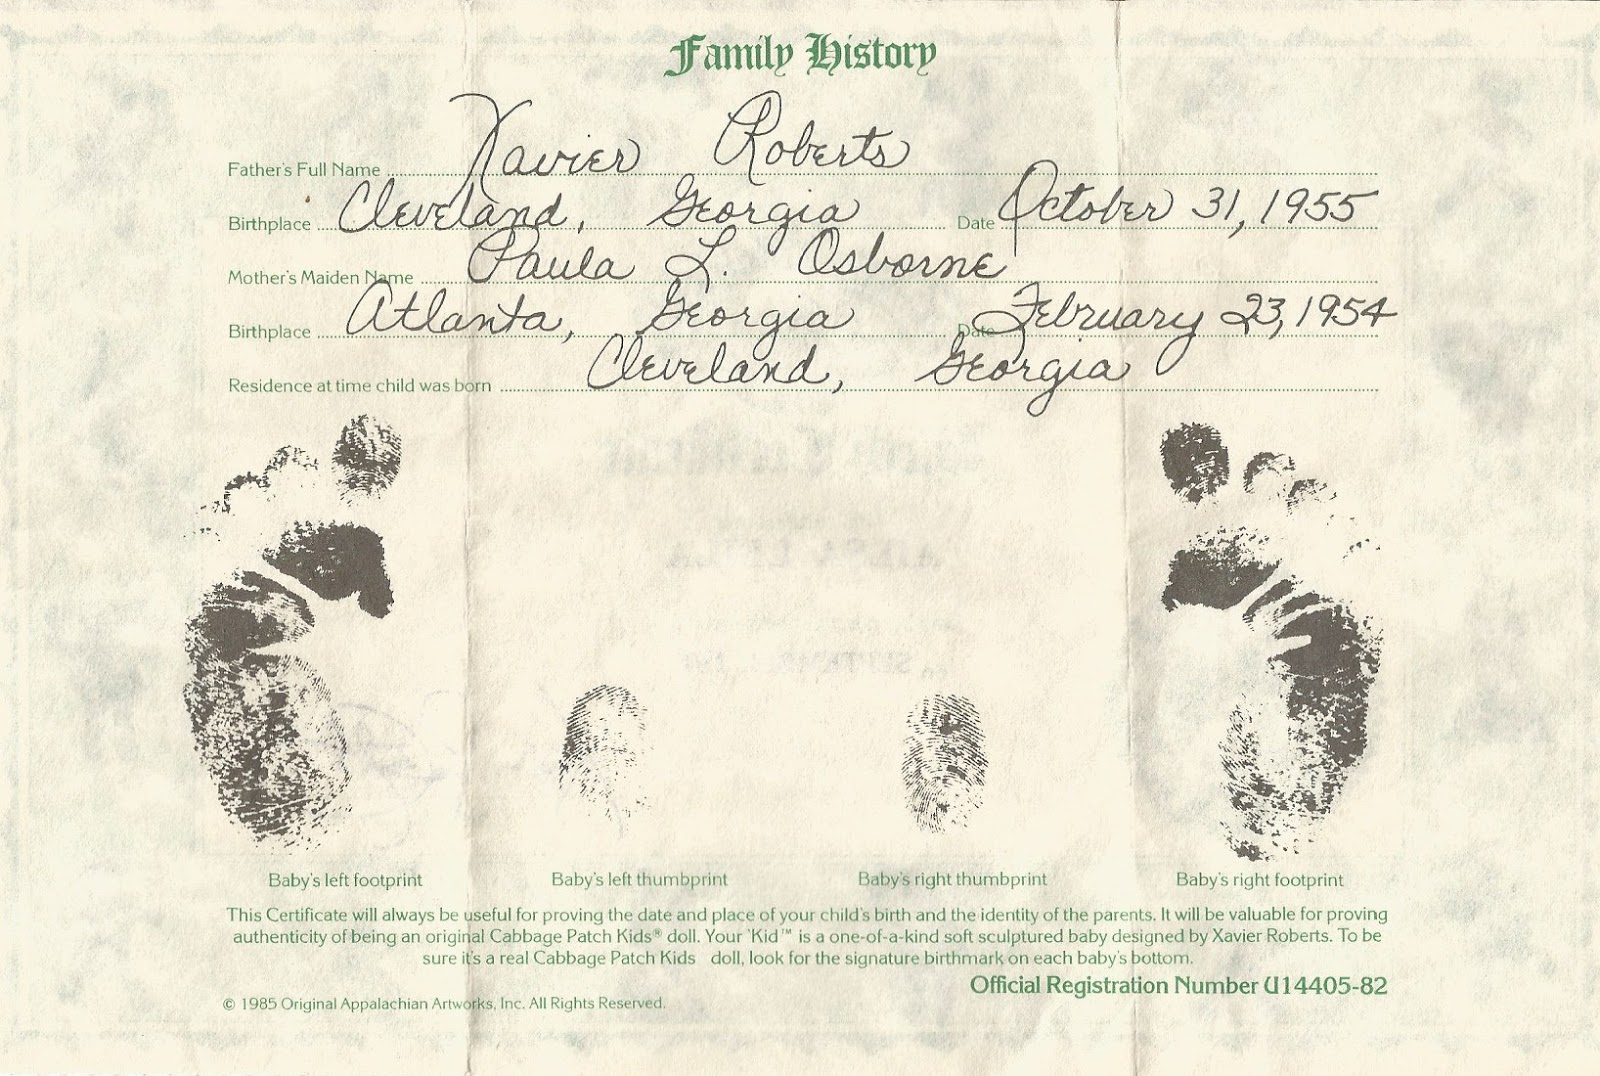 Family History
Father's Full Name Xavier Roberts
Birthplace Cleveland, Georgia Date October 31, 1955
Mother's Maiden Name Paula L. Osborne
Birthplace Atlanta, Georgia Date February 23, 1954
Residence at time child was born Cleveland, Georgia
Baby's left footprint Baby's left thumbprint Baby's right thumbprint Baby's right footprint
This Certificate will always be useful for proving the date and place of your child's birth and the identity of the parents. It will be valuable for proving
authenticity of being an original Cabbage Patch Kids® doll. Your 'Kid™ is a one-of-a-kind soft sculptured baby designed by Xavier Roberts. To be
sure it's a real Cabbage Patch Kids doll, look for the signature birthmark on each baby's bottom.
Official Registration Number U14405-82
© 1985 Original Appalachian Artworks, Inc. All Rights Reserved.